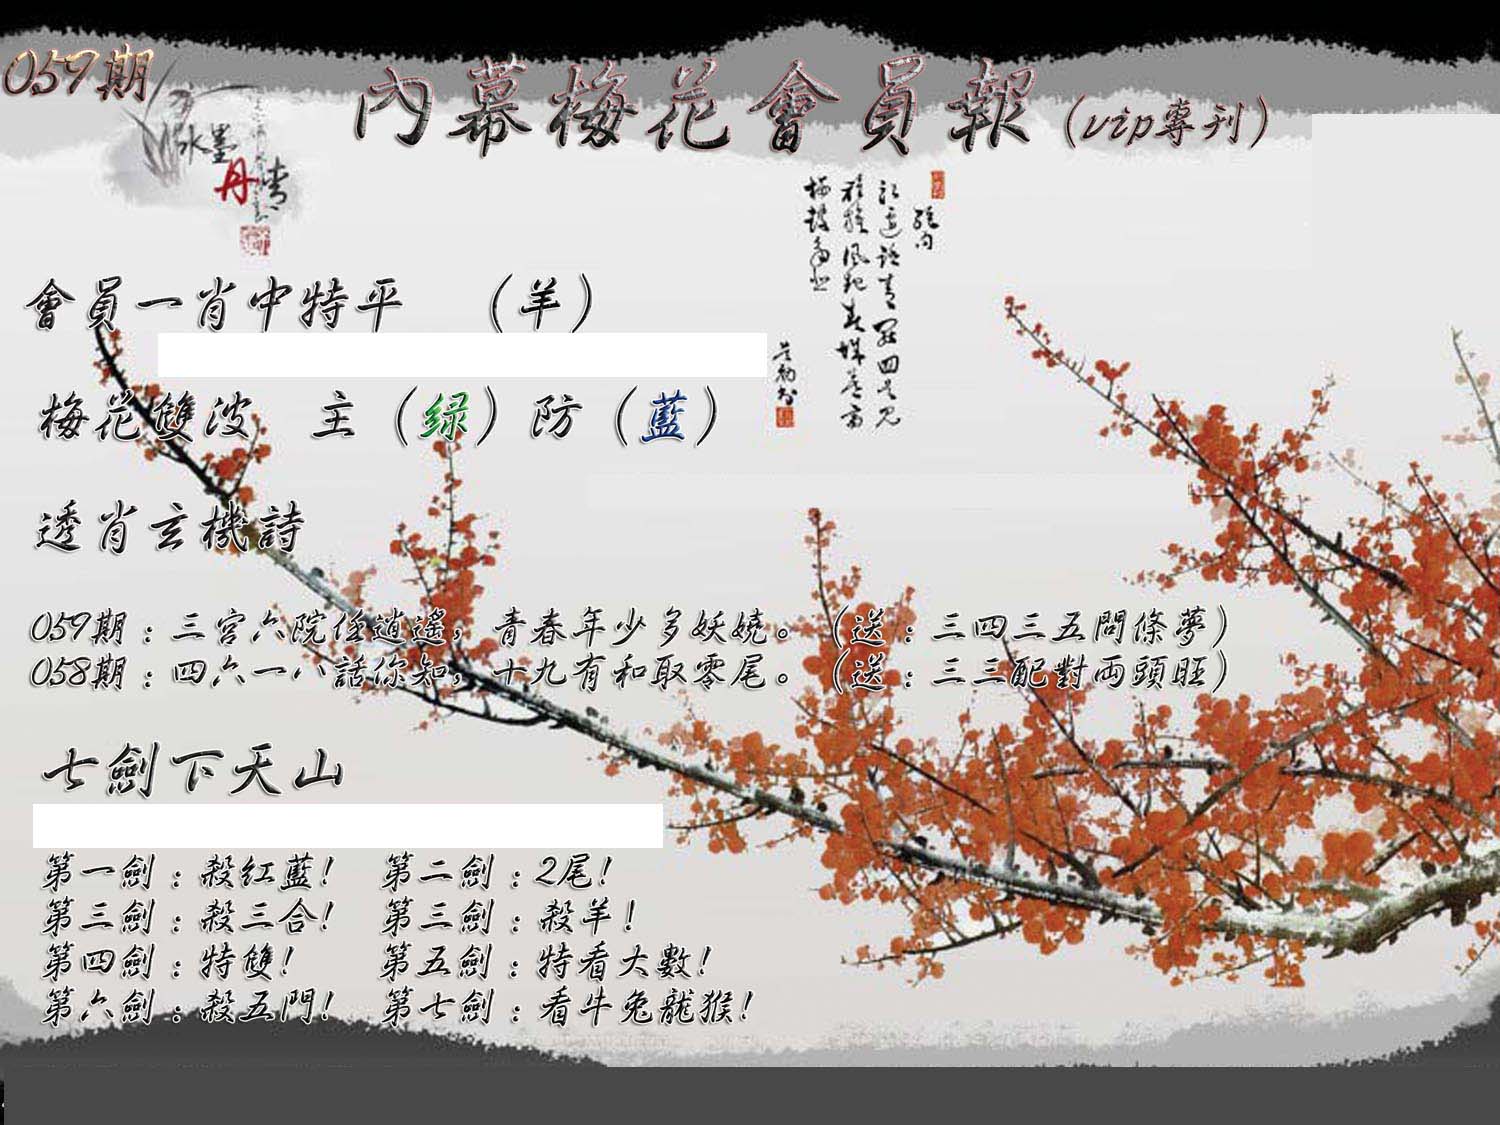 059期
內幕梅花會員報(vip專刊)
水墨
丹青
會員一肖中特平 (羊)
梅花雙波 主(绿)防(藍)
透肖玄機詩
059期:三宮六院任逍遙,青春年少多妖嬈。(送:三四三五問條夢)
058期:四六一八話你知,十九有和取零尾。(送:三三配對兩頭旺)
七劍下天山
第一劍:殺红藍! 第二劍:2尾!
第三劍:殺三合! 第三劍:殺羊!
第四劍:特雙! 第五劍:特看大數!
第六劍:殺五門! 第七劍:看牛兔龍猴!